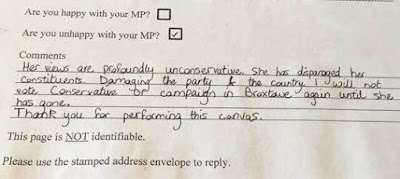 Are you happy with your MP?
Are you unhappy with your MP? ✓
Comments
Her views are profoundly unconservative. She has disparaged her
constituents. Damaging the party & the country. I will not
vote Conservative or campaign in Broxtowe again until she
has gone.
Thank you for performing this canvas.
This page is NOT identifiable.
Please use the stamped address envelope to reply.